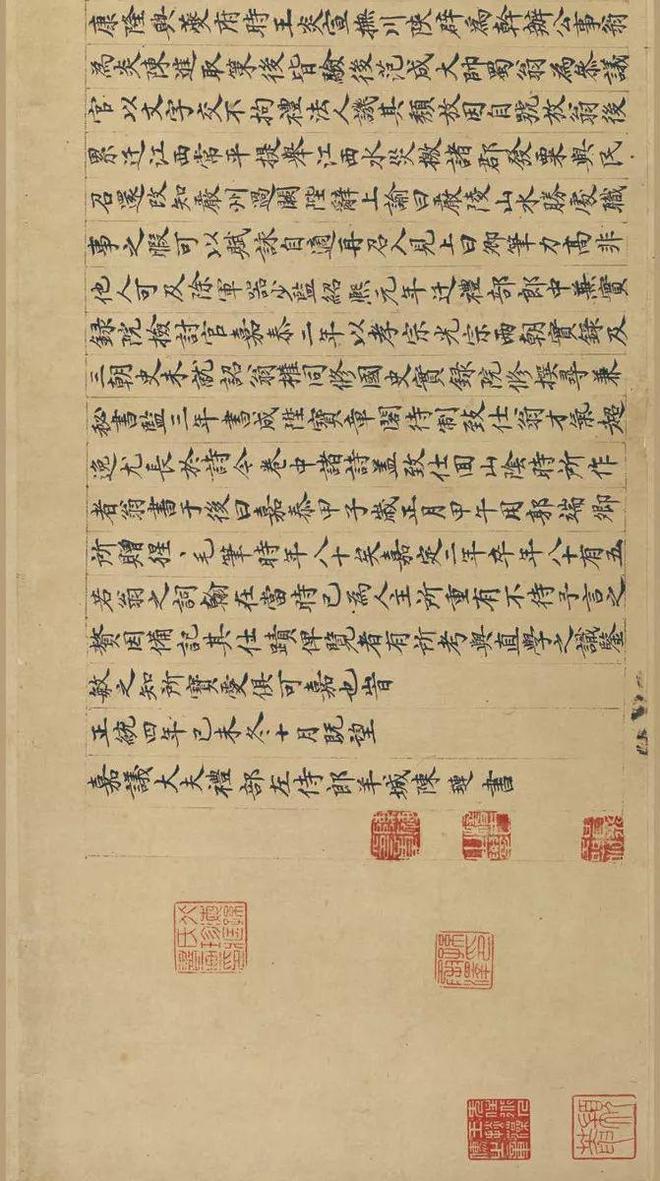 康隆興夔府時王炎宣撫川陝辟為幹辦公事翁
為炎陳進取策後皆驗後范成大帥蜀翁為參議
官以文字交不拘禮法人譏其頹放因自號放翁後
累迁江西常平提舉江西水災檄諸郡發粟與民
召還改知嚴州過闕陛辭上諭曰嚴陵山水勝處職
事之暇可以賦詠自適再召入見上曰卿筆力髙非
他人可及除軍器少監紹熙元年迁禮部郎中兼實
録院檢討官嘉泰二年以孝宗光宗兩朝實録及
三朝史未就詔翁權同修國史實録院修撰尋兼
秘書監三年書成陞寶章閣待制致仕翁才氣超
逸尤長於詩今卷中諸詩盖致仕囬山陰時所作
者翁書于後曰嘉泰甲子歲正月甲午用郭端卿
所贈猩〻毛筆時年八十矣嘉定二年卒年八十有五
若翁之詞翰在當時已為人主所重有不待予言之
贅因備記其仕蹟俾覽者有所考與直學之識鑒
敏之知所寶愛俱可嘉也旹
正統四年己未冬十月既望
嘉議大夫禮部左侍郎羊城陳璉書